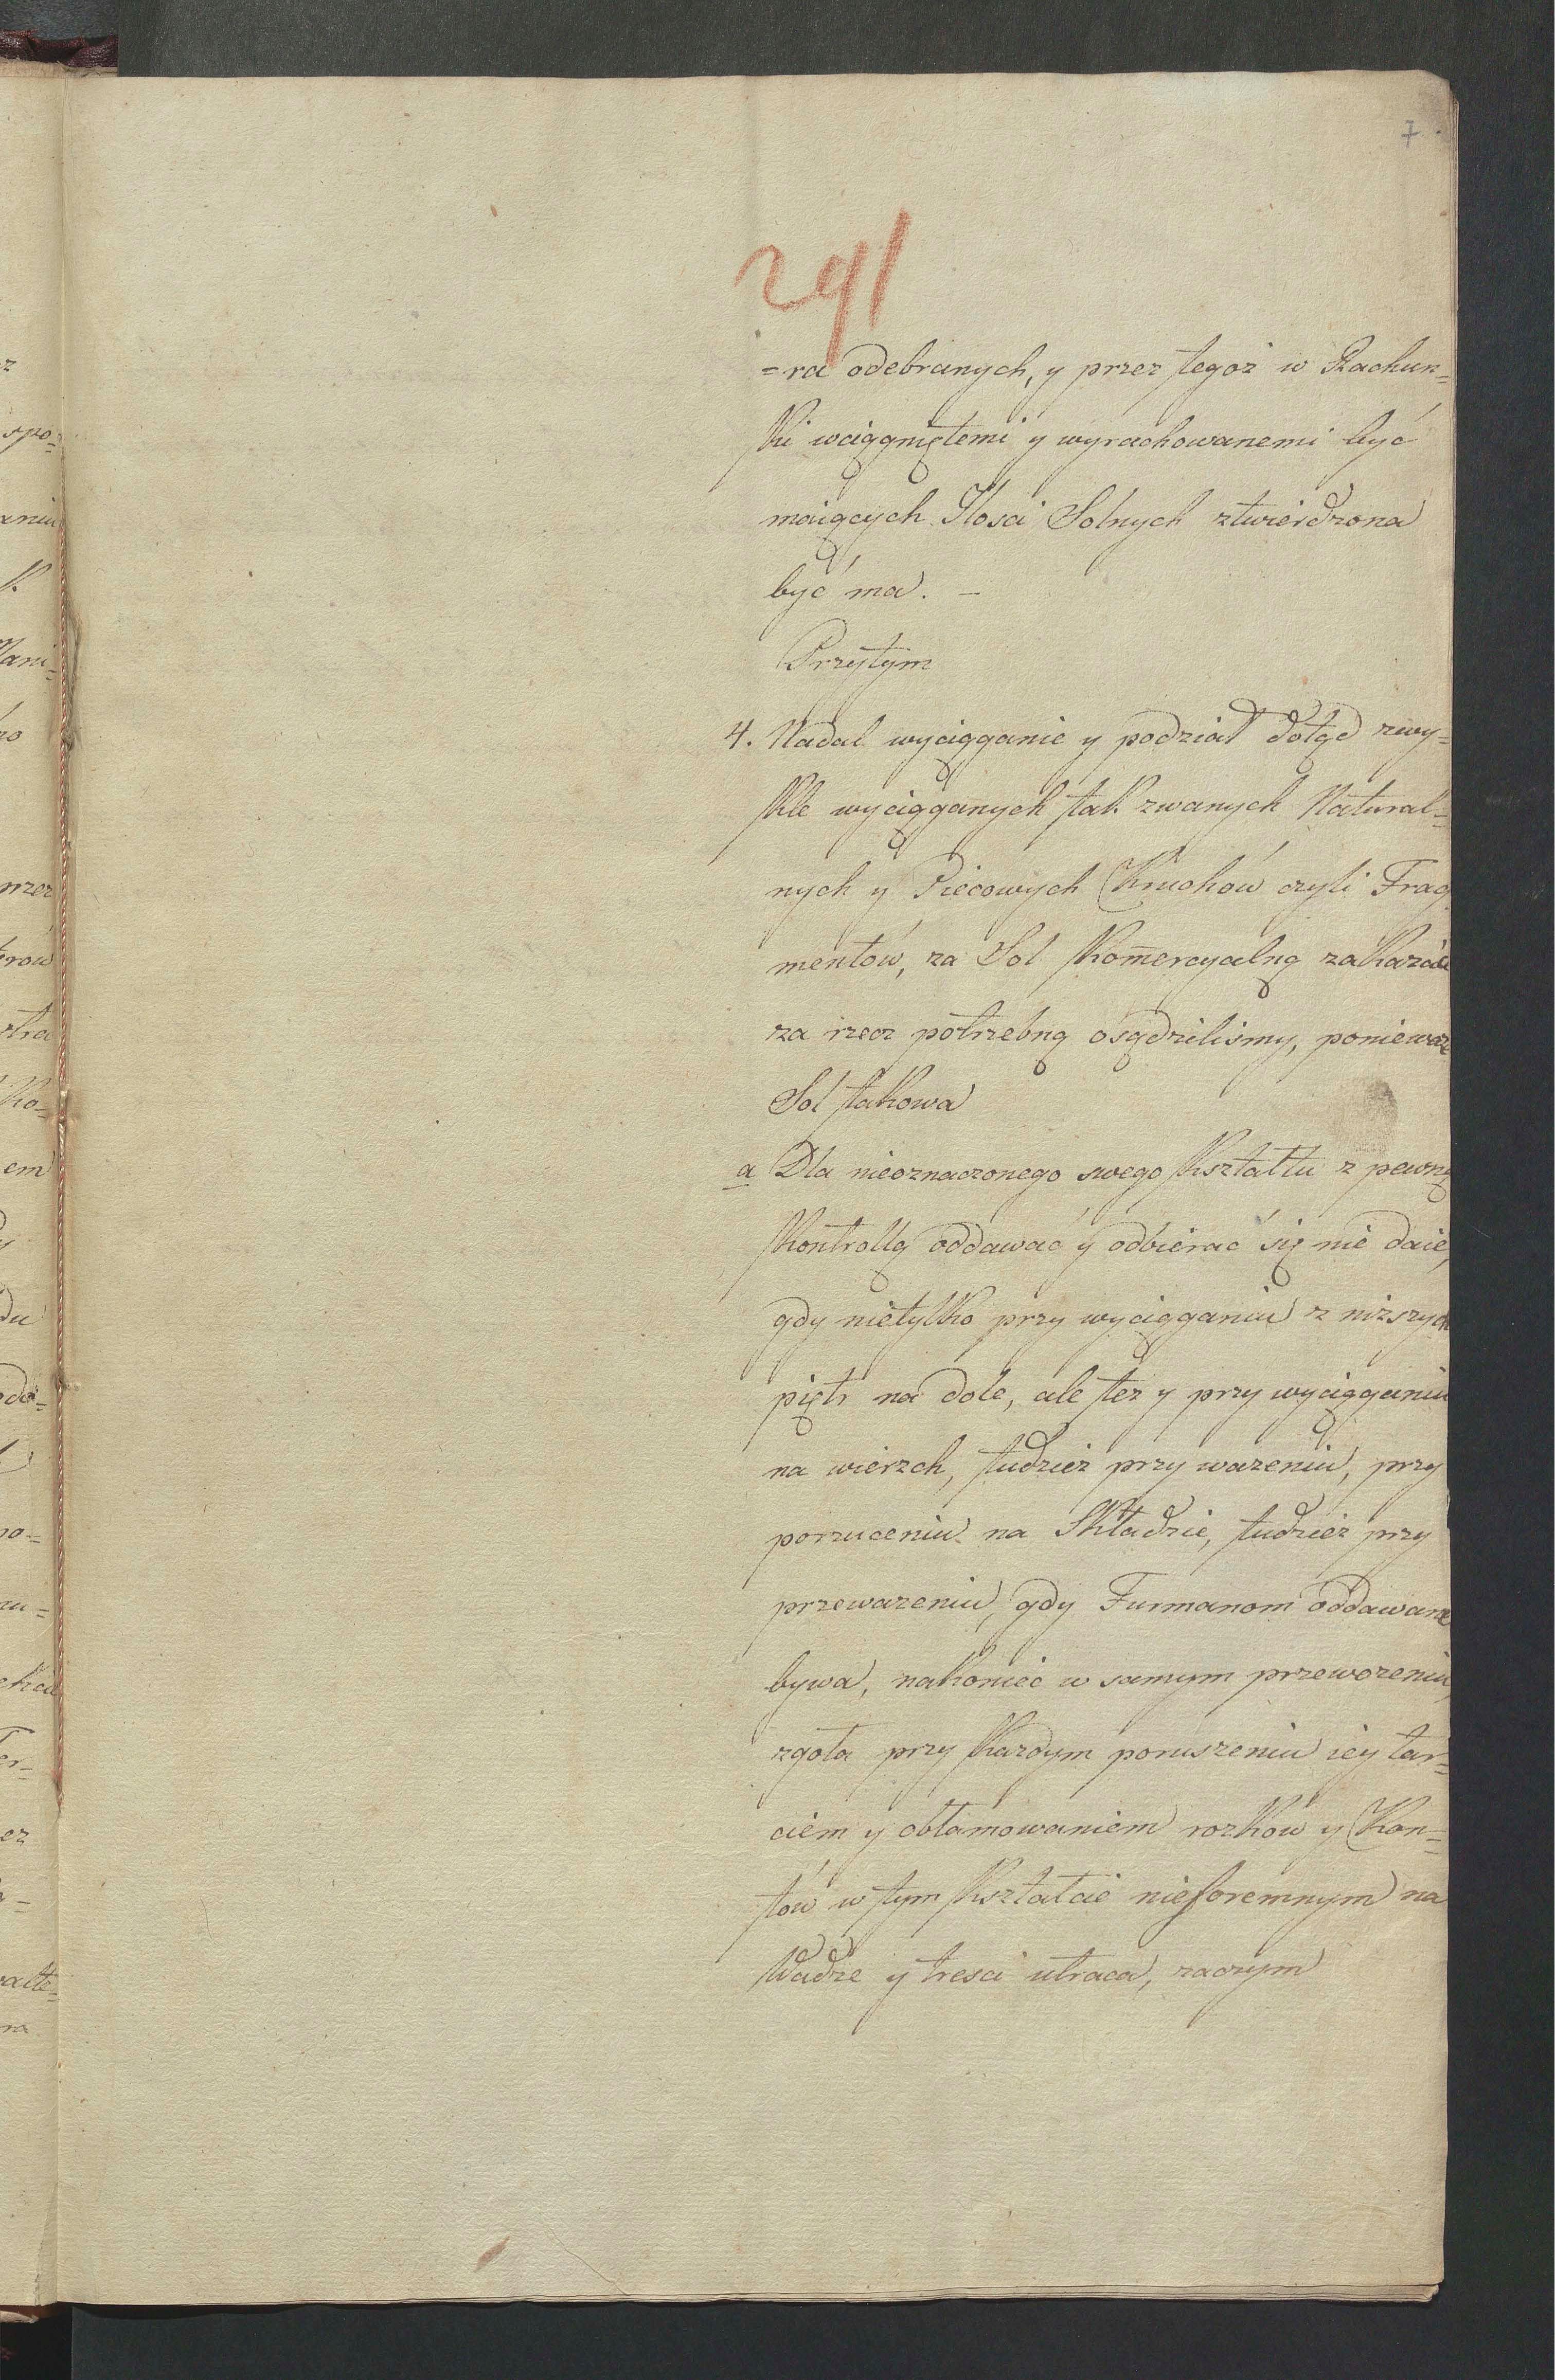 7.
291
=ra odebranych, y przez tegoż w Rachun=
ki wciągniętemi y wyrachowanemi być
maiących Ilosci Solnych ztwierdzona
być ma. –
Przytym
4. Nadal wyciąganie y podział dotąd zwy=
kle wyciąganych tak zwanych Natural=
nych y Piecowych Kruchów czyli Frag
mentów, za Sol Kom̅ercyalną zakazać
za rzecz potrzebną osądzilismy, ponieważ
Sol takowa
a Dla nieoznaczonego swego Kształtu z pewną
Kontrollą oddawać y odbierać się nie daie,
gdy nietylko przy wyciąganiu z niższych
piętr na dole, ale też y przy wyciąganiu
na wierzch, tudzież przy ważeniu, przy
porzuceniu na Składzie, tudzież przy
przeważeniu, gdy Furmanom oddawane
bywa, nakoniec w samym przewozeniu,
zgoła przy każdym poruszeniu iey tar=
ciem y obłamowaniem rożków y Kan=
tów w tym Kształcie nieforemnym na
Wadze y tresci utraca, zaczym